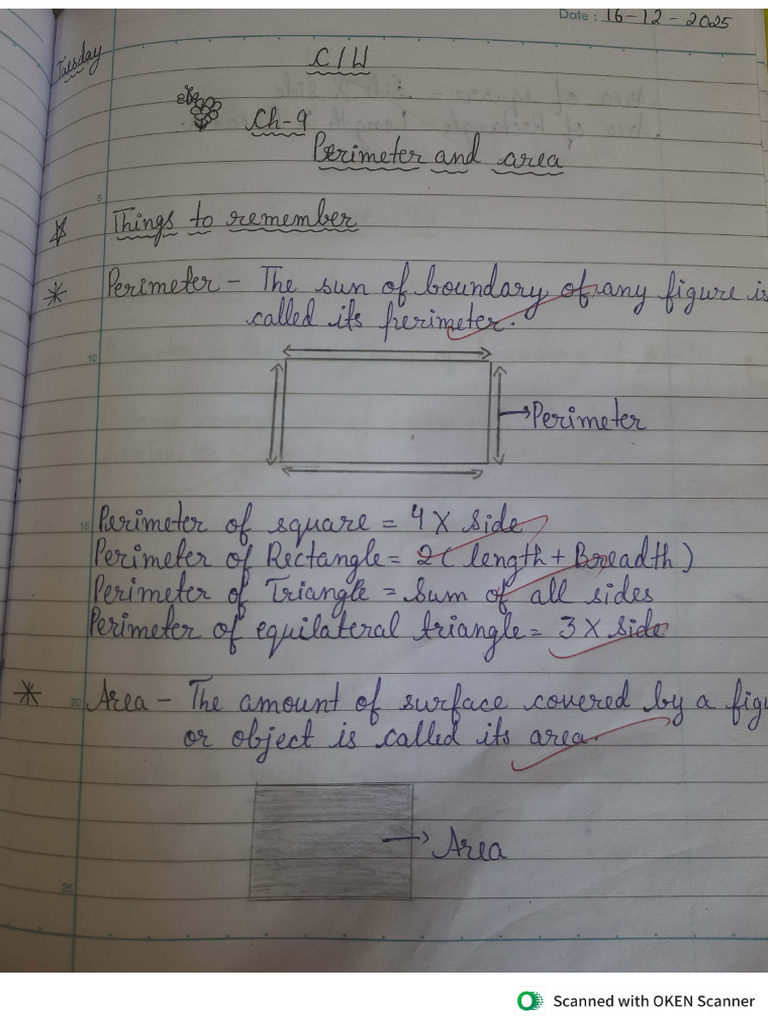 Date : 16-12-2025
Tuesday
C/W
Ch-9
Perimeter and area
5
Things to remember
Perimeter - The sun of boundary of any figure is
called its perimeter.
10
→Perimeter
15 Perimeter of square = 4 X Side
Perimeter of Rectangle = 2 ( length + Breadth )
Perimeter of Triangle = Sum of all sides
Perimeter of equilateral triangle = 3 X Side
20 Area - The amount of surface covered by a figu
or object is called its area.
→ Area
25
Scanned with OKEN Scanner